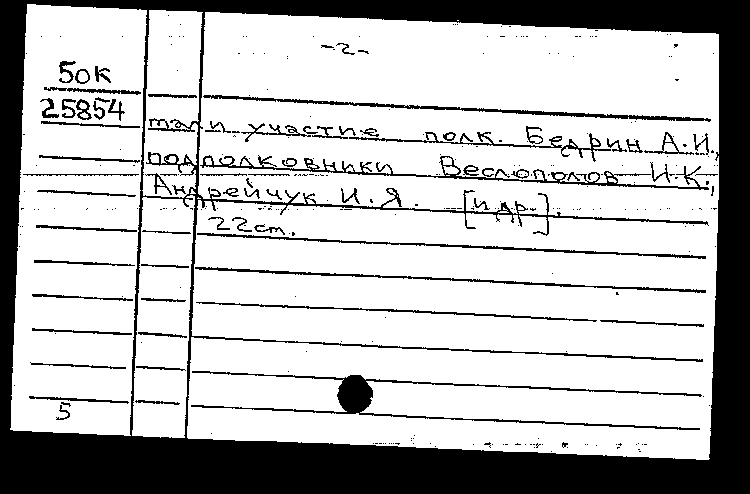 -2-
50К
25854
тали участие полк. Бедрин А.И.,
подполковники Веслополов И.К.,
Андрейчук И.Я. [и др.].
22 ст.
5